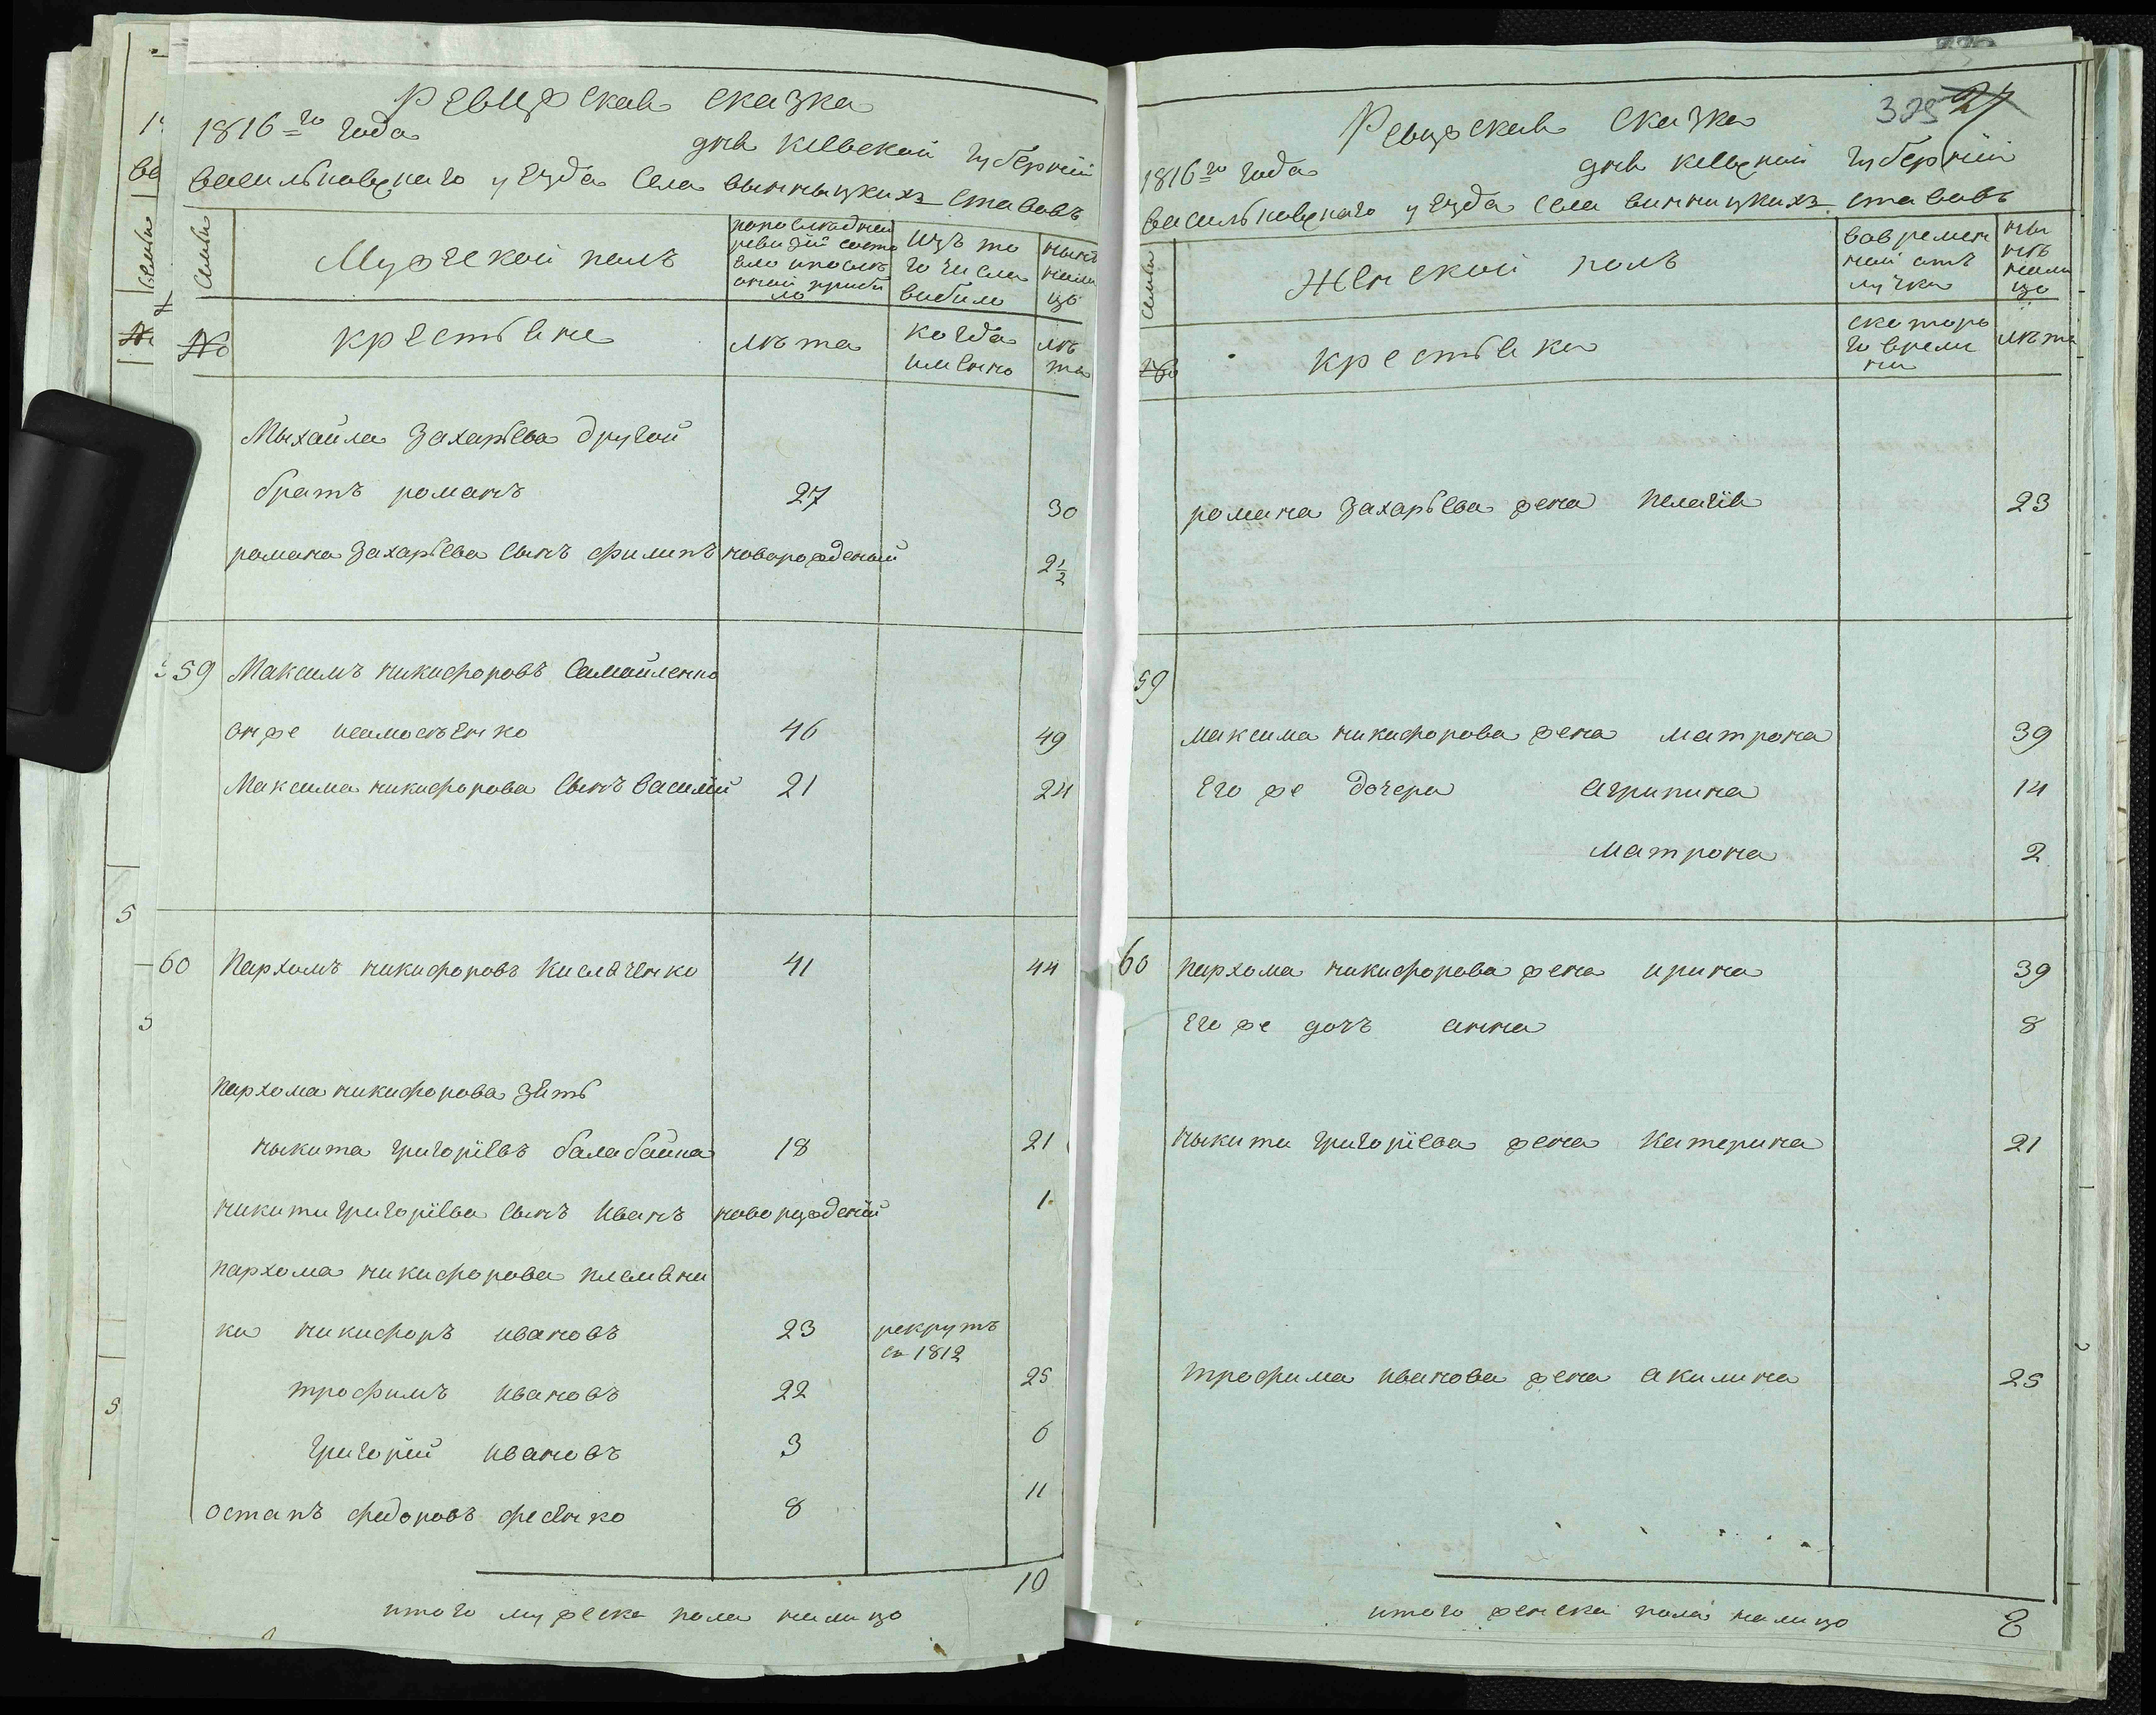 Ревизская сказка
1816=го года дня киевской губернии
васильковского уезда села винницких ставовъ
Семьи
Мужеской полъ
по последней ревизии состояло и после оной прибило
изъ того числа выбило
ныне налицо
№
крестьяне
лѣта
когда именно
лѣта
Мыхайла Захарьева другой
братъ романъ 27 30
романа Захарьева сынъ филипъ новорожденый 2½
59 Максимъ никифоровъ Самойленко
онже 46 49
Максима никифорова сынъ василий 21 24
60 Пархомъ никифоровъ Кисляченко 41 44
пархома никифорова зять
никита григорiевъ балабайка 18 21
никити григорiева сынъ иванъ новорожденый 1
пархома никифорова племяни
ки никифоръ ивановъ 23 рекрутъ
въ 1812
трофимъ ивановъ 22 25
григорий ивановъ 3 6
остапъ федоровъ фесенко 8 11
итого мужеска пола налицо 10
Ревизская сказка
1816=го года дня киевской губернии
васильковского уезда села винницкихъ ставовъ
Семьи
Женской полъ
во временной отлучки
нынѣ налицо
№
крестьянки
с которого времени
лѣта
романа Захарьева жена пелагiя 23
59
максима никифорова жена матрона 39
Его же дочери агрипина 14
матрона 2
60 пархома никифорова жена ирина 39
Его же дочъ анна 8
никити григорiева жена катерина 21
трофима иванова жена акилина 25
итого женска пола налицо 8